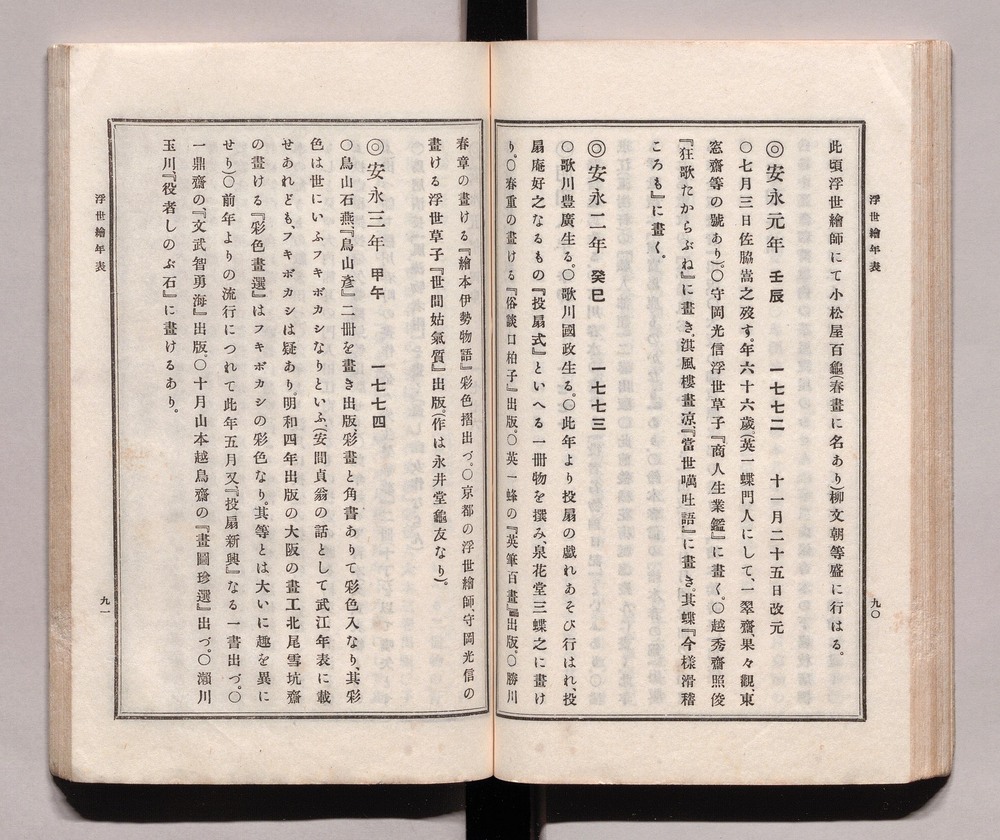 浮世繪年表
九〇
此頃浮世繪師にて小松屋百龜(春畫に名あり)柳文朝等盛に行はる。
◎安永元年 壬辰 一七七二 十一月二十五日改元
〇七月三日佐脇嵩之歿す。年六十六歲(英一蝶門人にして、一翠齋、果々觀、東
窓齋等の號あり)。〇守岡光信浮世草子『商人生業鑑』に畫く。〇越秀齋照俊
『狂歌たからぶね』に畫き、淇風樓畫凉『當世噶吐語』に畫き、其蝶『今樣滑稽
ころも』に畫く。
◎安永二年 癸巳 一七七三
〇歌川豊廣生る。〇歌川國政生る。〇此年より投扇の戲れあそび行はれ、投
扇庵好之なるもの『投扇式』といへる一冊物を撰み、泉花堂三蝶之に畫け
り。〇春重の畫ける『俗談口柏子』出版。〇英一蜂の『英筆百畫』出版。〇勝川
春章の畫ける『繪本伊勢物語』彩色摺出づ。〇京都の浮世繪師、守岡光信の
畫ける浮世草子『世間姑氣質』出版。(作は永井堂龜友なり)。
◎安永三年 甲午 一七七四
〇鳥山石燕『鳥山彥』二冊を畫き出版、彩畫と角書ありて彩色入なり、其彩
色は世にいふフキボカシなりといふ、(安間貞翁の話として武江年表に載
せあれども、フキボカシは疑あり。明和四年出版の大阪の畫工北尾雪坑齋
の畫ける『彩色畫選』はフキボカシの彩色なり。其等とは大いに趣を異に
せり)〇前年よりの流行につれて此年五月又、『投扇新興』なる一書出づ。〇
一鼎齋の、『文武智勇海』出版、〇十月山本越鳥齋の『畫圖珍選』出づ。〇瀨川
玉川『役者しのぶ石』に畫けるあり。
浮世繪年表
九一